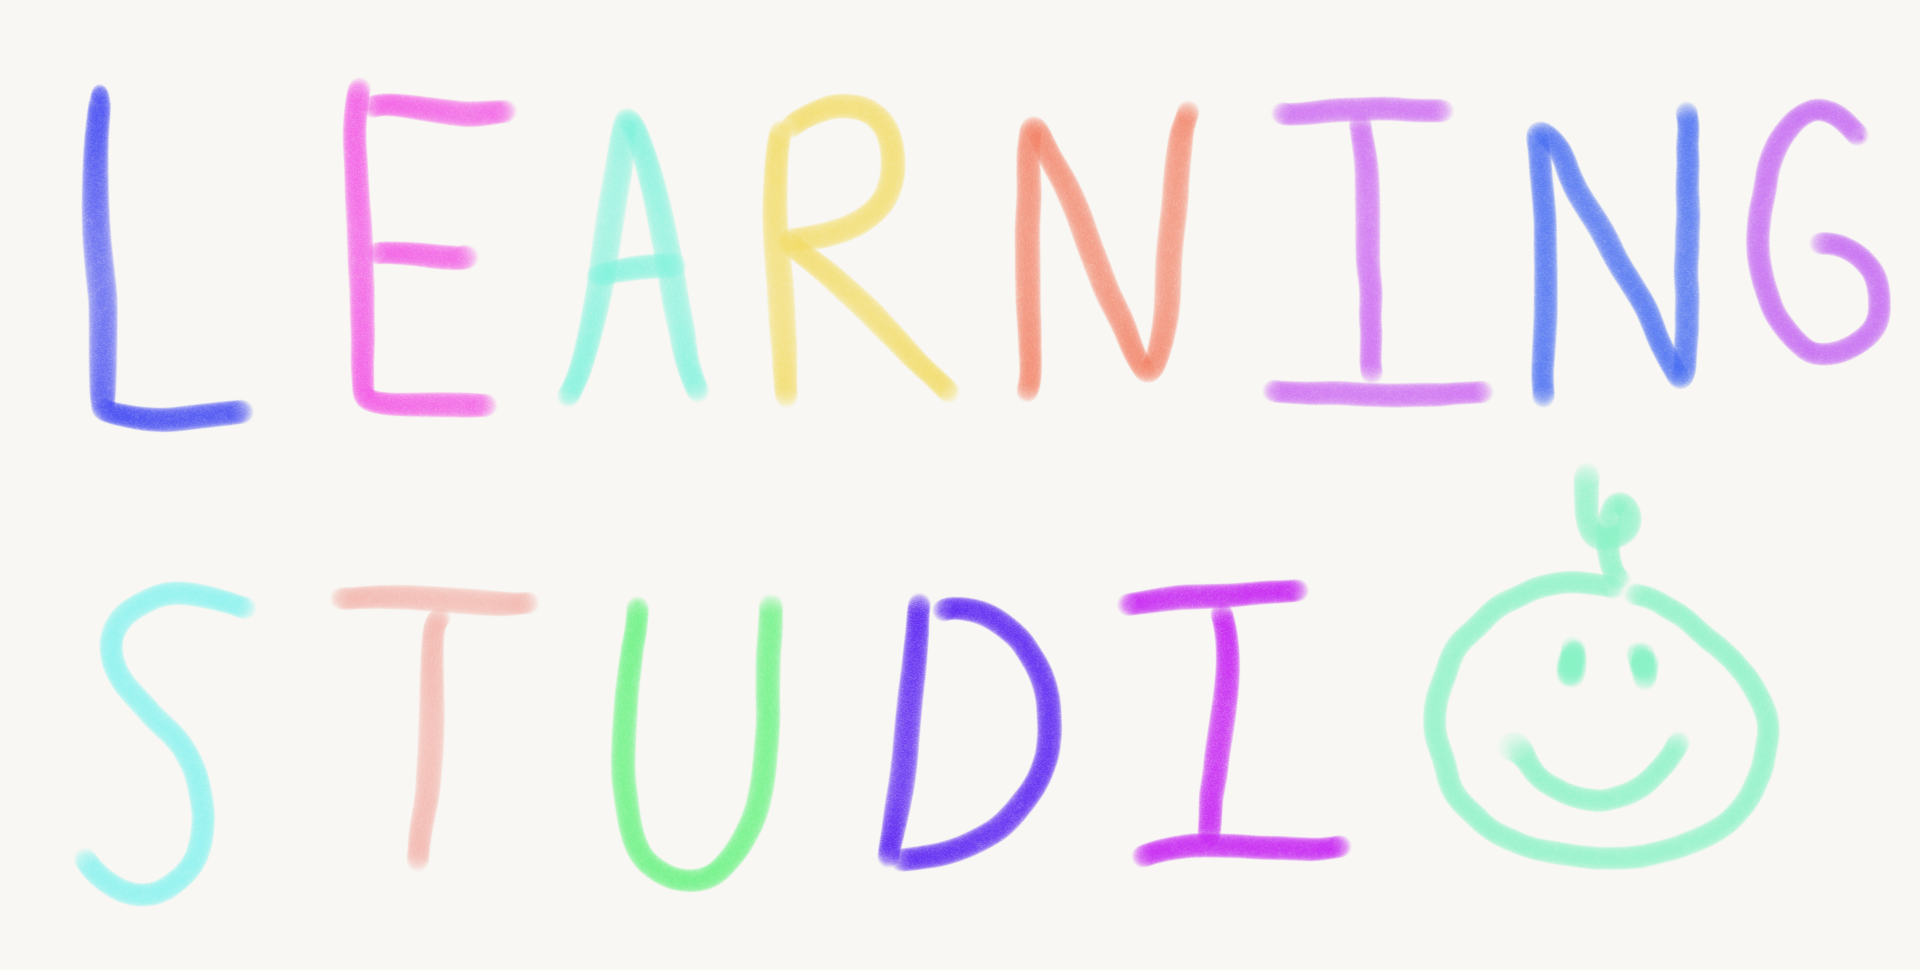 LEARNING
STUDIO